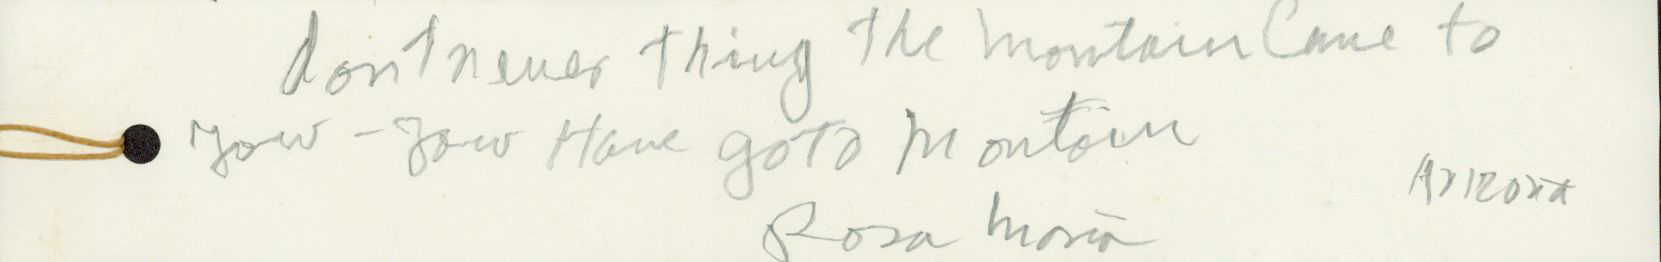 dont never thing the montain Came to
yow - yow Have go to Montain
Rosa Maria
Arizona